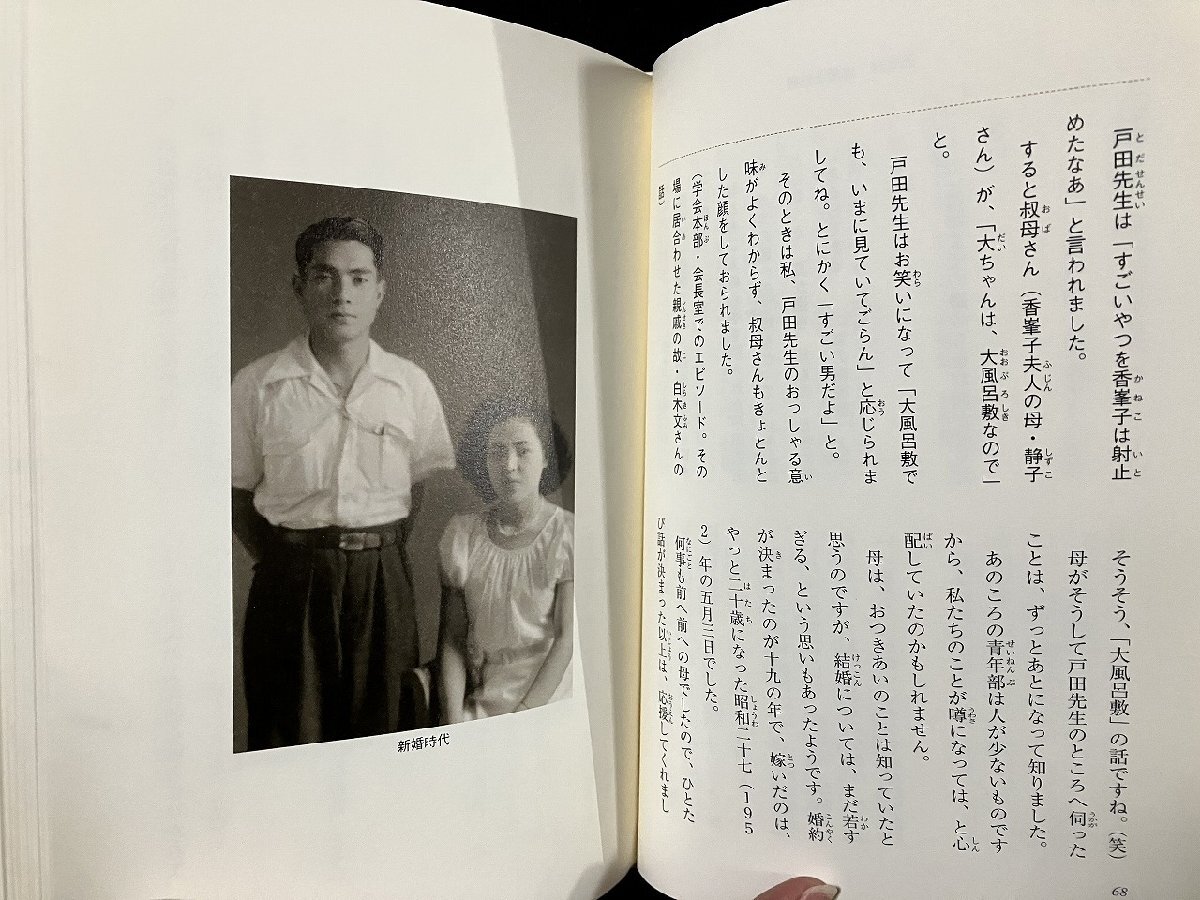 戸田先生は「すごいやつを香峯子は射止
めたなあ」と言われました。
すると叔母さん（香峯子夫人の母・静子
さん）が、「大ちゃんは、大風呂敷なので」
と。
戸田先生はお笑いになって「大風呂敷で
も、いまに見ていてごらん」と応じられま
してね。とにかく「すごい男だよ」と。
そのときは私、戸田先生のおっしゃる意
味がよくわからず、叔母さんもきょとんと
した顔をしておられました。
（学会本部・会長室でのエピソード。その
場に居合わせた親戚の故・白木文さんの
話）
そうそう、「大風呂敷」の話ですね。（笑）
母がそうして戸田先生のところへ伺った
ことは、ずっとあとになって知りました。
あのころの青年部は人が少ないものです
から、私たちのことが噂になっては、と心
配していたのかもしれません。
母は、おつきあいのことは知っていたと
思うのですが、結婚については、まだ若す
ぎる、という思いもあったようです。婚約
が決まったのが十九の年で、嫁いだのは、
やっと二十歳になった昭和二十七（195
2）年の五月三日でした。
何事も前へ前への母でしたので、ひとた
び話が決まった以上は、応援してくれまし
68
新婚時代